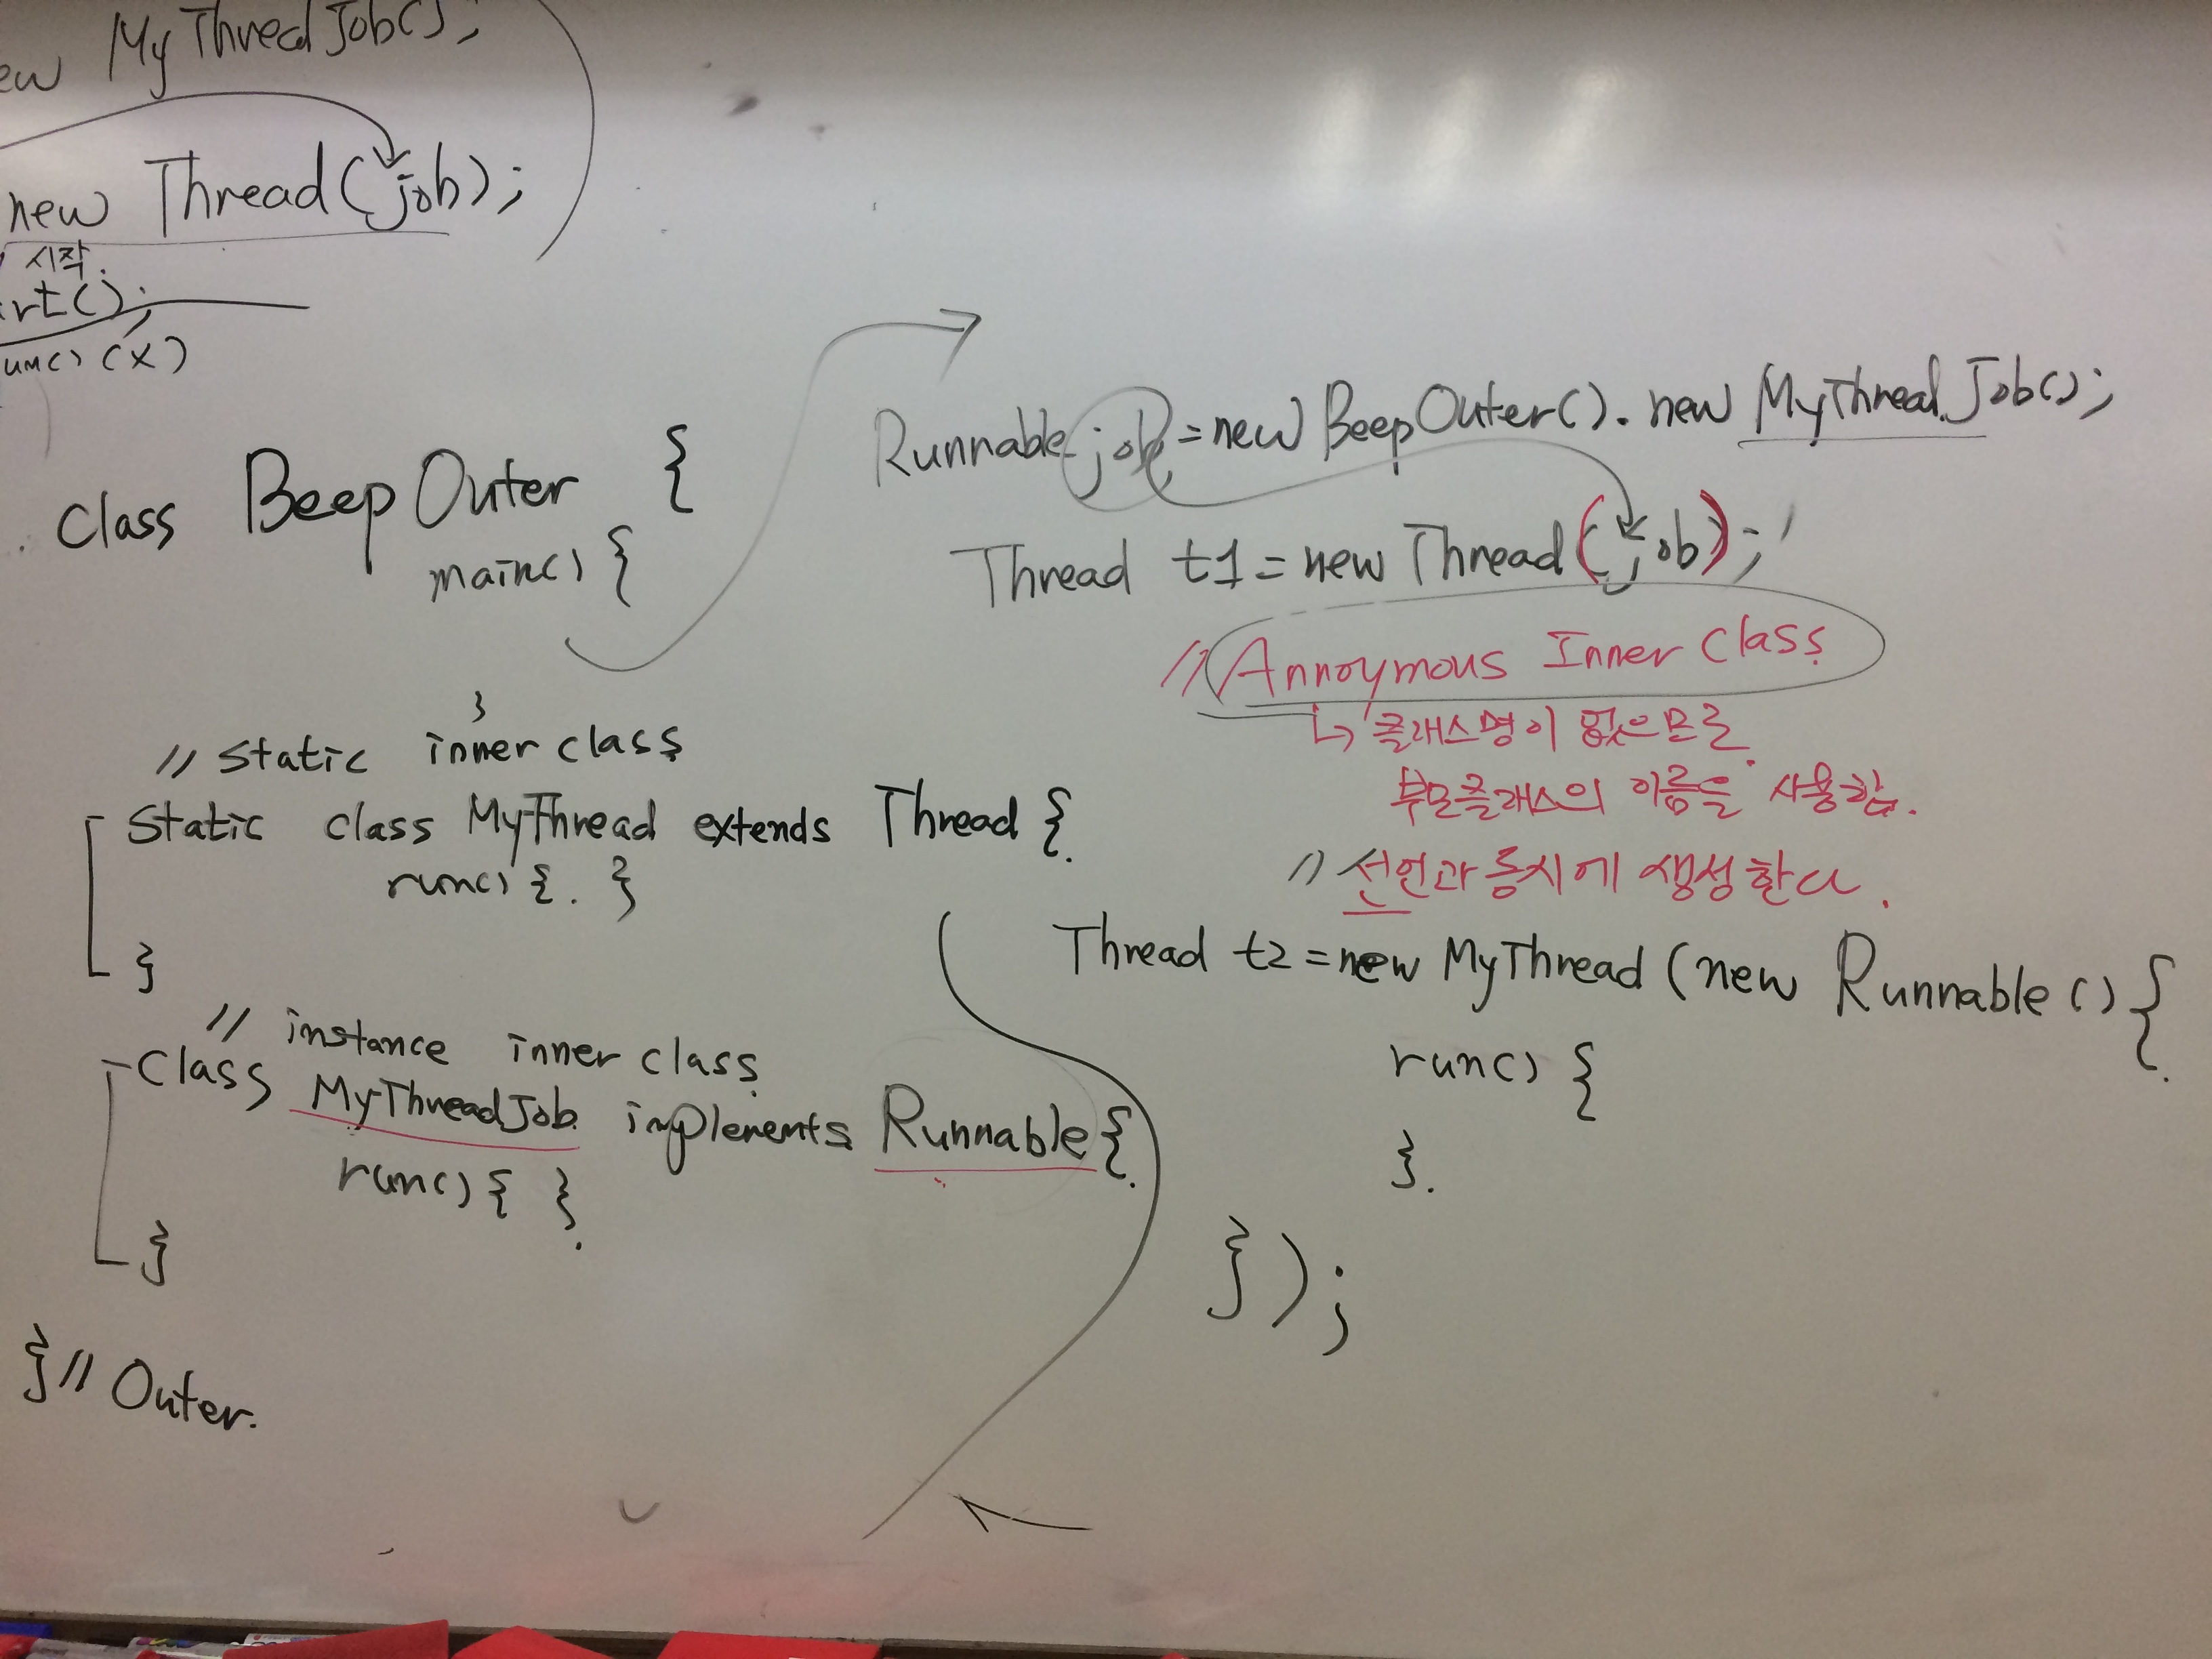 new MyThreadJob();
new Thread(job);
시작.
rt();
run() (X)
class BeepOuter {
main() {
}
// Static inner class
Static class MyThread extends Thread {
run() { }
}
// instance inner class
Class MyThreadJob implements Runnable {
run() { }
}
} // Outer.
Runnable job = new BeepOuter(). new MyThreadJob();
Thread t1 = new Thread (job);
// Annoymous Inner Class
↳ 클래스명이 없으므로
부모클래스의 이름을 사용함.
// 선언과 동시에 생성한다.
Thread t2 = new MyThread (new Runnable () {
run() {
}
});